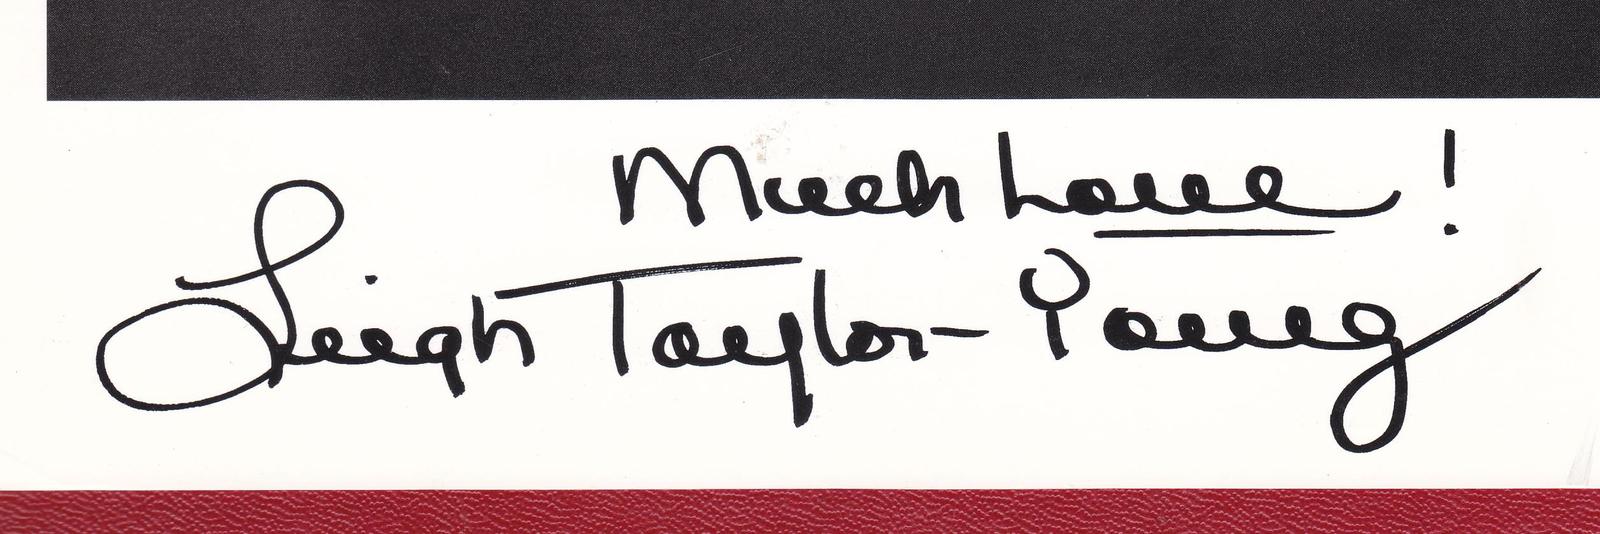 Much Love!
Leigh Taylor-Young